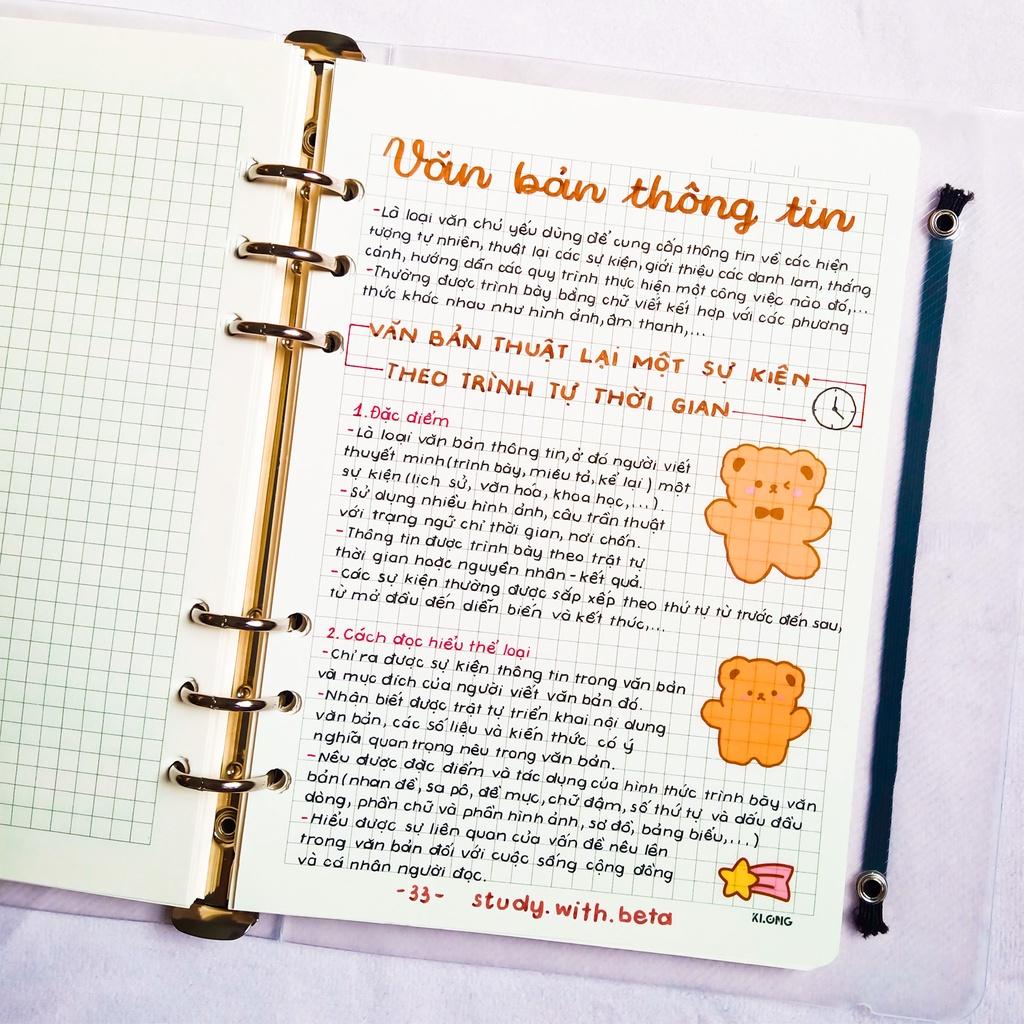 Văn bản thông tin
-Là loại văn chủ yếu dùng để cung cấp thông tin về các hiện
tượng tự nhiên, thuật lại các sự kiện, giới thiệu các danh lam, thắng
cảnh, hướng dẫn các quy trình thực hiện một công việc nào đó,...
-Thường được trình bày bằng chữ viết kết hợp với các phương
thức khác nhau như hình ảnh, âm thanh,...
VĂN BẢN THUẬT LẠI MỘT SỰ KIỆN
THEO TRÌNH TỰ THỜI GIAN
1.Đặc điểm
-Là loại văn bản thông tin, ở đó người viết
thuyết minh (trình bày, miêu tả, kể lại) một
sự kiện (lịch sử, văn hóa, khoa học,...).
-Sử dụng nhiều hình ảnh, câu trần thuật
với trạng ngữ chỉ thời gian, nơi chốn.
-Thông tin được trình bày theo trật tự
thời gian hoặc nguyên nhân-kết quả.
-Các sự kiện thường được sắp xếp theo thứ tự từ trước đến sau,
từ mở đầu đến diễn biến và kết thúc,...
2.Cách đọc hiểu thể loại
-Chỉ ra được sự kiện thông tin trong văn bản
và mục đích của người viết văn bản đó.
-Nhận biết được trật tự triển khai nội dung
văn bản, các số liệu và kiến thức có ý
nghĩa quan trọng nêu trong văn bản.
-Nêu được đặc điểm và tác dụng của hình thức trình bày văn
bản (nhan đề, sa pô, đề mục, chữ đậm, số thứ tự và dấu đầu
dòng, phần chữ và phần hình ảnh, sơ đồ, bảng biểu,...)
-Hiểu được sự liên quan của vấn đề nêu lên
trong văn bản đối với cuộc sống cộng đồng
và cá nhân người đọc.
-33- study.with.beta
KLONG